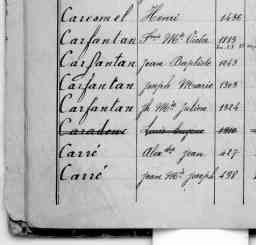 Caresmel Henri 1436
Carfantan Fois Mie Victor
Carfantan Jean Baptiste 1263
Carfantan Joseph Marie 1308
Carfantan Jh Mie Julien 1324
Caradeuc Louis Eugene 1310
Carré Alexdre Jean 427
Carré Jean Mie Joseph 490